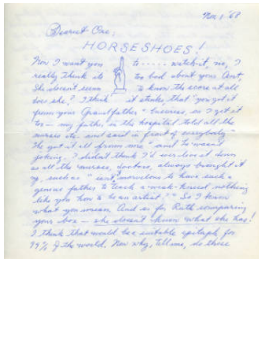 Nov, 1 '68
Dearest One,
HORSESHOES!
Now I want you to ----- watch it, no, I
really think it's too bad about your Aunt,
she doesn't seem to know the score at all
does she? I think it stinks that you got it
from your Grandfather - business is I got it
too - my father in the hospital told all the
nurses etc. and said in front of everybody - "
He got it all from me" and he wasn't
joking. I didn't think I'd ever live it down
as all the nurses, doctors, always brought it
up, such as "isn't marvelous to have such a
genius father to teach a weak-kneed nothing
like you how to be an artist"" So I know
what you mean. And as for Ruth comparing
your box - she doesn't know what she has!
I think that would be a suitable epitaph for
99% of the world. Now why, tell me, do these